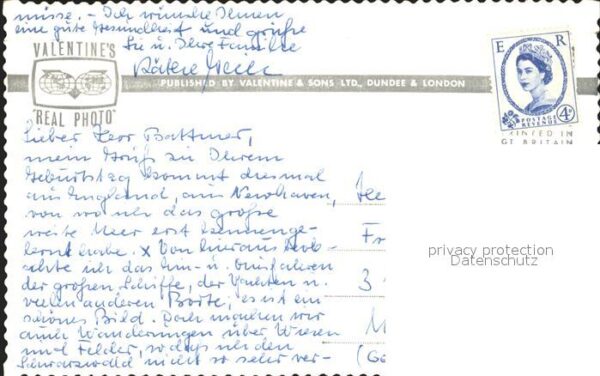 misse. – Ich wünsche Ihnen
eine gute Gesundheit und grüße
Sie u. Ihre Familie
Käthe
VALENTINE'S
"REAL PHOTO"
PUBLISHED BY VALENTINE & SONS LTD., DUNDEE & LONDON
E R
POSTAGE REVENUE 4D
PRINTED IN
GT BRITAIN
Lieber Herr Battmer,
mein Gruß zu Ihrem
Geburtstag kommt diesmal
aus England, aus Newhaven,
von wo ich das große
weite Meer erst kennenge-
lernt habe. x Von hier aus beob-
achte ich das Aus- u. Einfahren
der großen Schiffe, der Yachten u.
vielen anderen Boote; es ist ein
schönes Bild. Doch machen wir
auch Wanderungen über Wiesen
und Felder, so dass ich den
Schwarzwald nicht so sehr ver-
Her
Fr
3
M
(Ge
privacy protection
Datenschutz